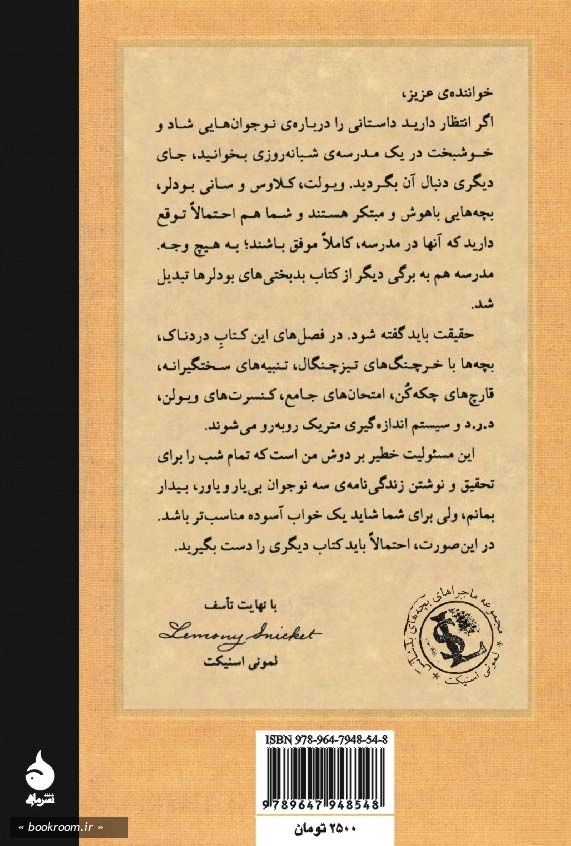 خواننده‌ی عزیز،
اگر انتظار دارید داستانی را درباره‌ی نوجوان‌هایی شاد و
خوشبخت در یک مدرسه‌ی شبانه‌روزی بخوانید، جای
دیگری دنبال آن بگردید. ویولت، کلاوس و سانی بودلر،
بچه‌هایی باهوش و مبتکر هستند و شما هم احتمالاً توقع
دارید که آنها در مدرسه، کاملاً موفق باشند؛ به هیچ وجه.
مدرسه هم به برگی دیگر از کتاب بدبختی‌های بودلرها تبدیل
شد.
حقیقت باید گفته شود. در فصل‌های این کتابِ دردناک،
بچه‌ها با خرچنگ‌های تیزچنگال، تنبیه‌های سختگیرانه،
قارچ‌های چکه‌کُن، امتحان‌های جامع، کنسرت‌های ویولن،
د.ر.د و سیستم اندازه‌گیری متریک روبه‌رو می‌شوند.
این مسئولیت خطیر بر دوش من است که تمام شب را برای
تحقیق و نوشتن زندگی‌نامه‌ی سه نوجوان بی‌یار و یاور، بیدار
بمانم، ولی برای شما شاید یک خواب آسوده مناسب‌تر باشد.
در این‌صورت، احتمالاً باید کتاب دیگری را دست بگیرید.
با نهایت تأسف
Lemony Snicket
لمونی اسنیکت
مجموعه ماجراهای بچه‌های بدشانس
* لمونی اسنیکت *
LS
ISBN 978-964-7948-54-8
9789647948548
۲۵۰۰ تومان
نشر ماهی
« bookroom.ir »